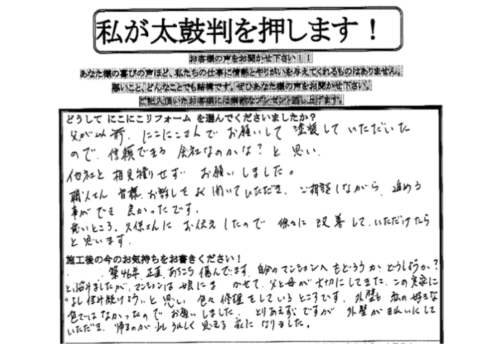 私が太鼓判を押します！
お客様の声をお聞かせ下さい！！
あなた様の喜びの声ほど、私たちの仕事に情熱とやりがいを与えてくれるものはありません。
悪いこと、どんなことでも結構です。ぜひあなた様の声をお聞かせ下さい。
ご記入頂いたお客様には素敵なプレゼント差し上げます。
どうして にこにこリフォーム を選んでくださいましたか？
父が以前、にこにこさんで お願いして 塗装して いただいた
ので、信頼できる 会社なのかな？と 思い、
他社と 相見積りせず お願いしました。
職人さん 皆様 お話しも よく聞いていただき、ご相談しながら 進める
事ができ 良かったです。
悪いところ、久保さんに お伝えしたので 徐々に 改善して いただけたら
と思います。
施工後の今のお気持ちをお書きください！
築46年 正直、あちこち 傷んでます。自分のマンションへ もどろうか どうしようか？
と悩みましたが、マンションは 娘に かせて、父と母が 大切にしてきた、この実家に
住み続けよう、と思い 色々 修理をしている ところです。外壁も 私の好きな
色ではなかったので お願いしました。とりあえず ですが 外壁が きれいにして
いただき、帰るのが 少しうれしく 思える 家に なりました。